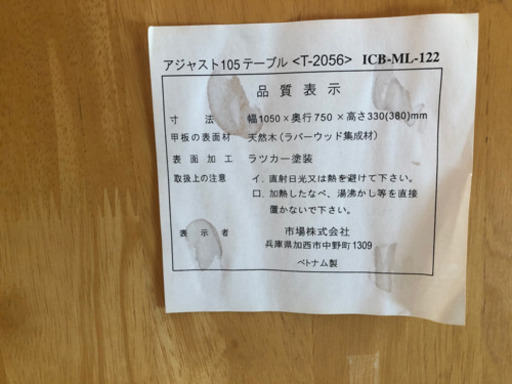 アジャスト105テーブル <T-2056> ICB-ML-122
品質表示
寸法 幅1050×奥行750×高さ330(380)mm
甲板の表面材 天然木(ラバーウッド集成材)
表面加工 ラツカー塗装
取扱上の注意 イ. 直射日光又は熱を避けて下さい。
ロ. 加熱したなべ、湯沸かし等を直接
置かないで下さい。
表示者 市場株式会社
兵庫県加西市中野町1309
ベトナム製